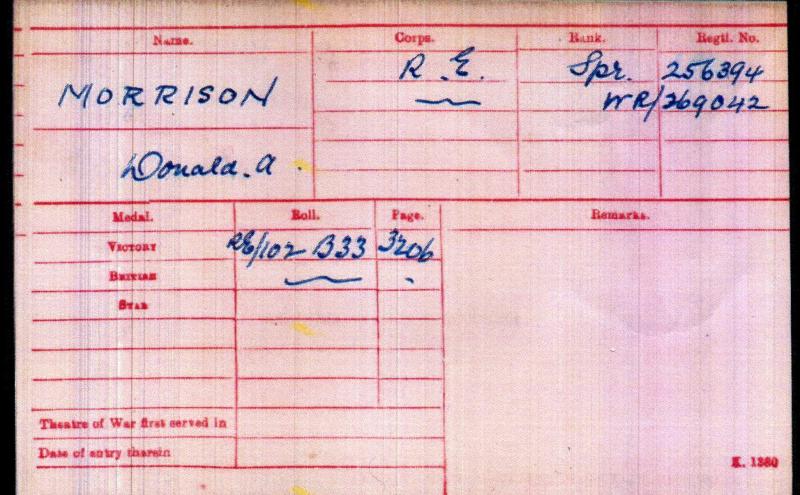 Name. Corps. Rank. Regtl. No.
MORRISON R.E. Spr. 256394
WR/269042
Donald. A.
Medal. Roll. Page. Remarks.
VICTORY RE/102 B33 3206
BRITISH
STAR
Theatre of War first served in
Date of entry therein
K. 1380